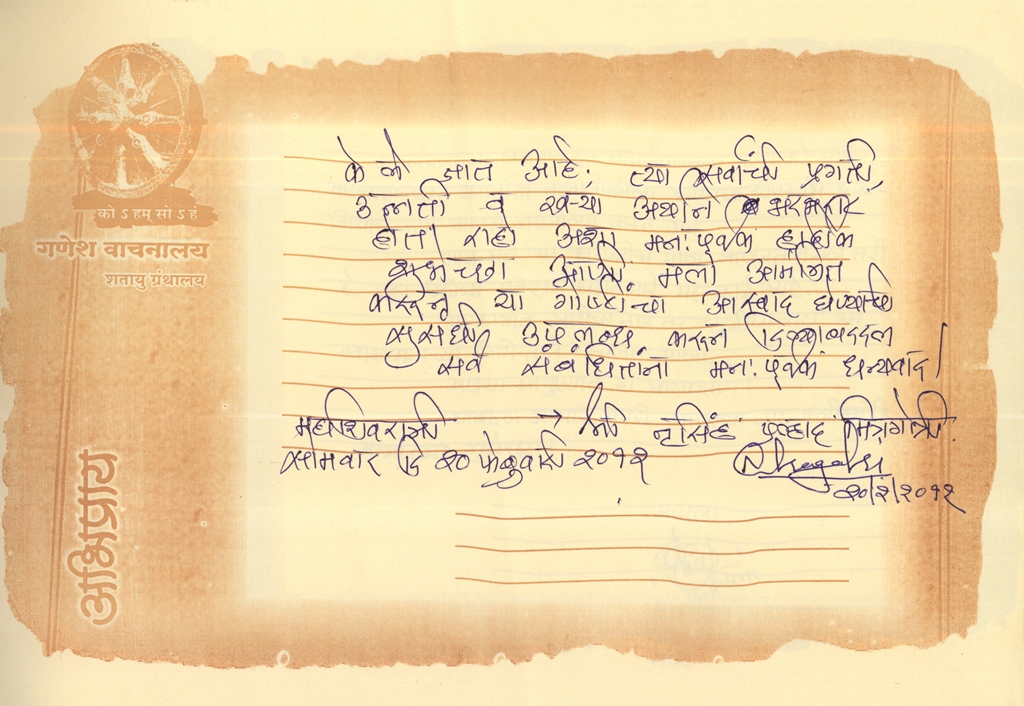 को ऽ हम् सो ऽ हं
गणेश वाचनालय
शतायु ग्रंथालय
अभिप्राय
केले जात आहे, त्या सर्वांची प्रगती,
उन्नती व खऱ्या अर्थाने भरभराट
होत राहो अशा मनःपूर्वक हार्दिक
शुभेच्छा आणि मला आमंत्रित
करून या गोष्टींचा आस्वाद घेण्याची
सुसंधी उपलब्ध करून दिल्याबद्दल
सर्व संबंधितांना मनःपूर्वक धन्यवाद।
महाशिवरात्री → नृसिंह प्रल्हाद मित्रगोत्री
सोमवार दि २० फेब्रुवारी २०१२
२०/२/२०१२